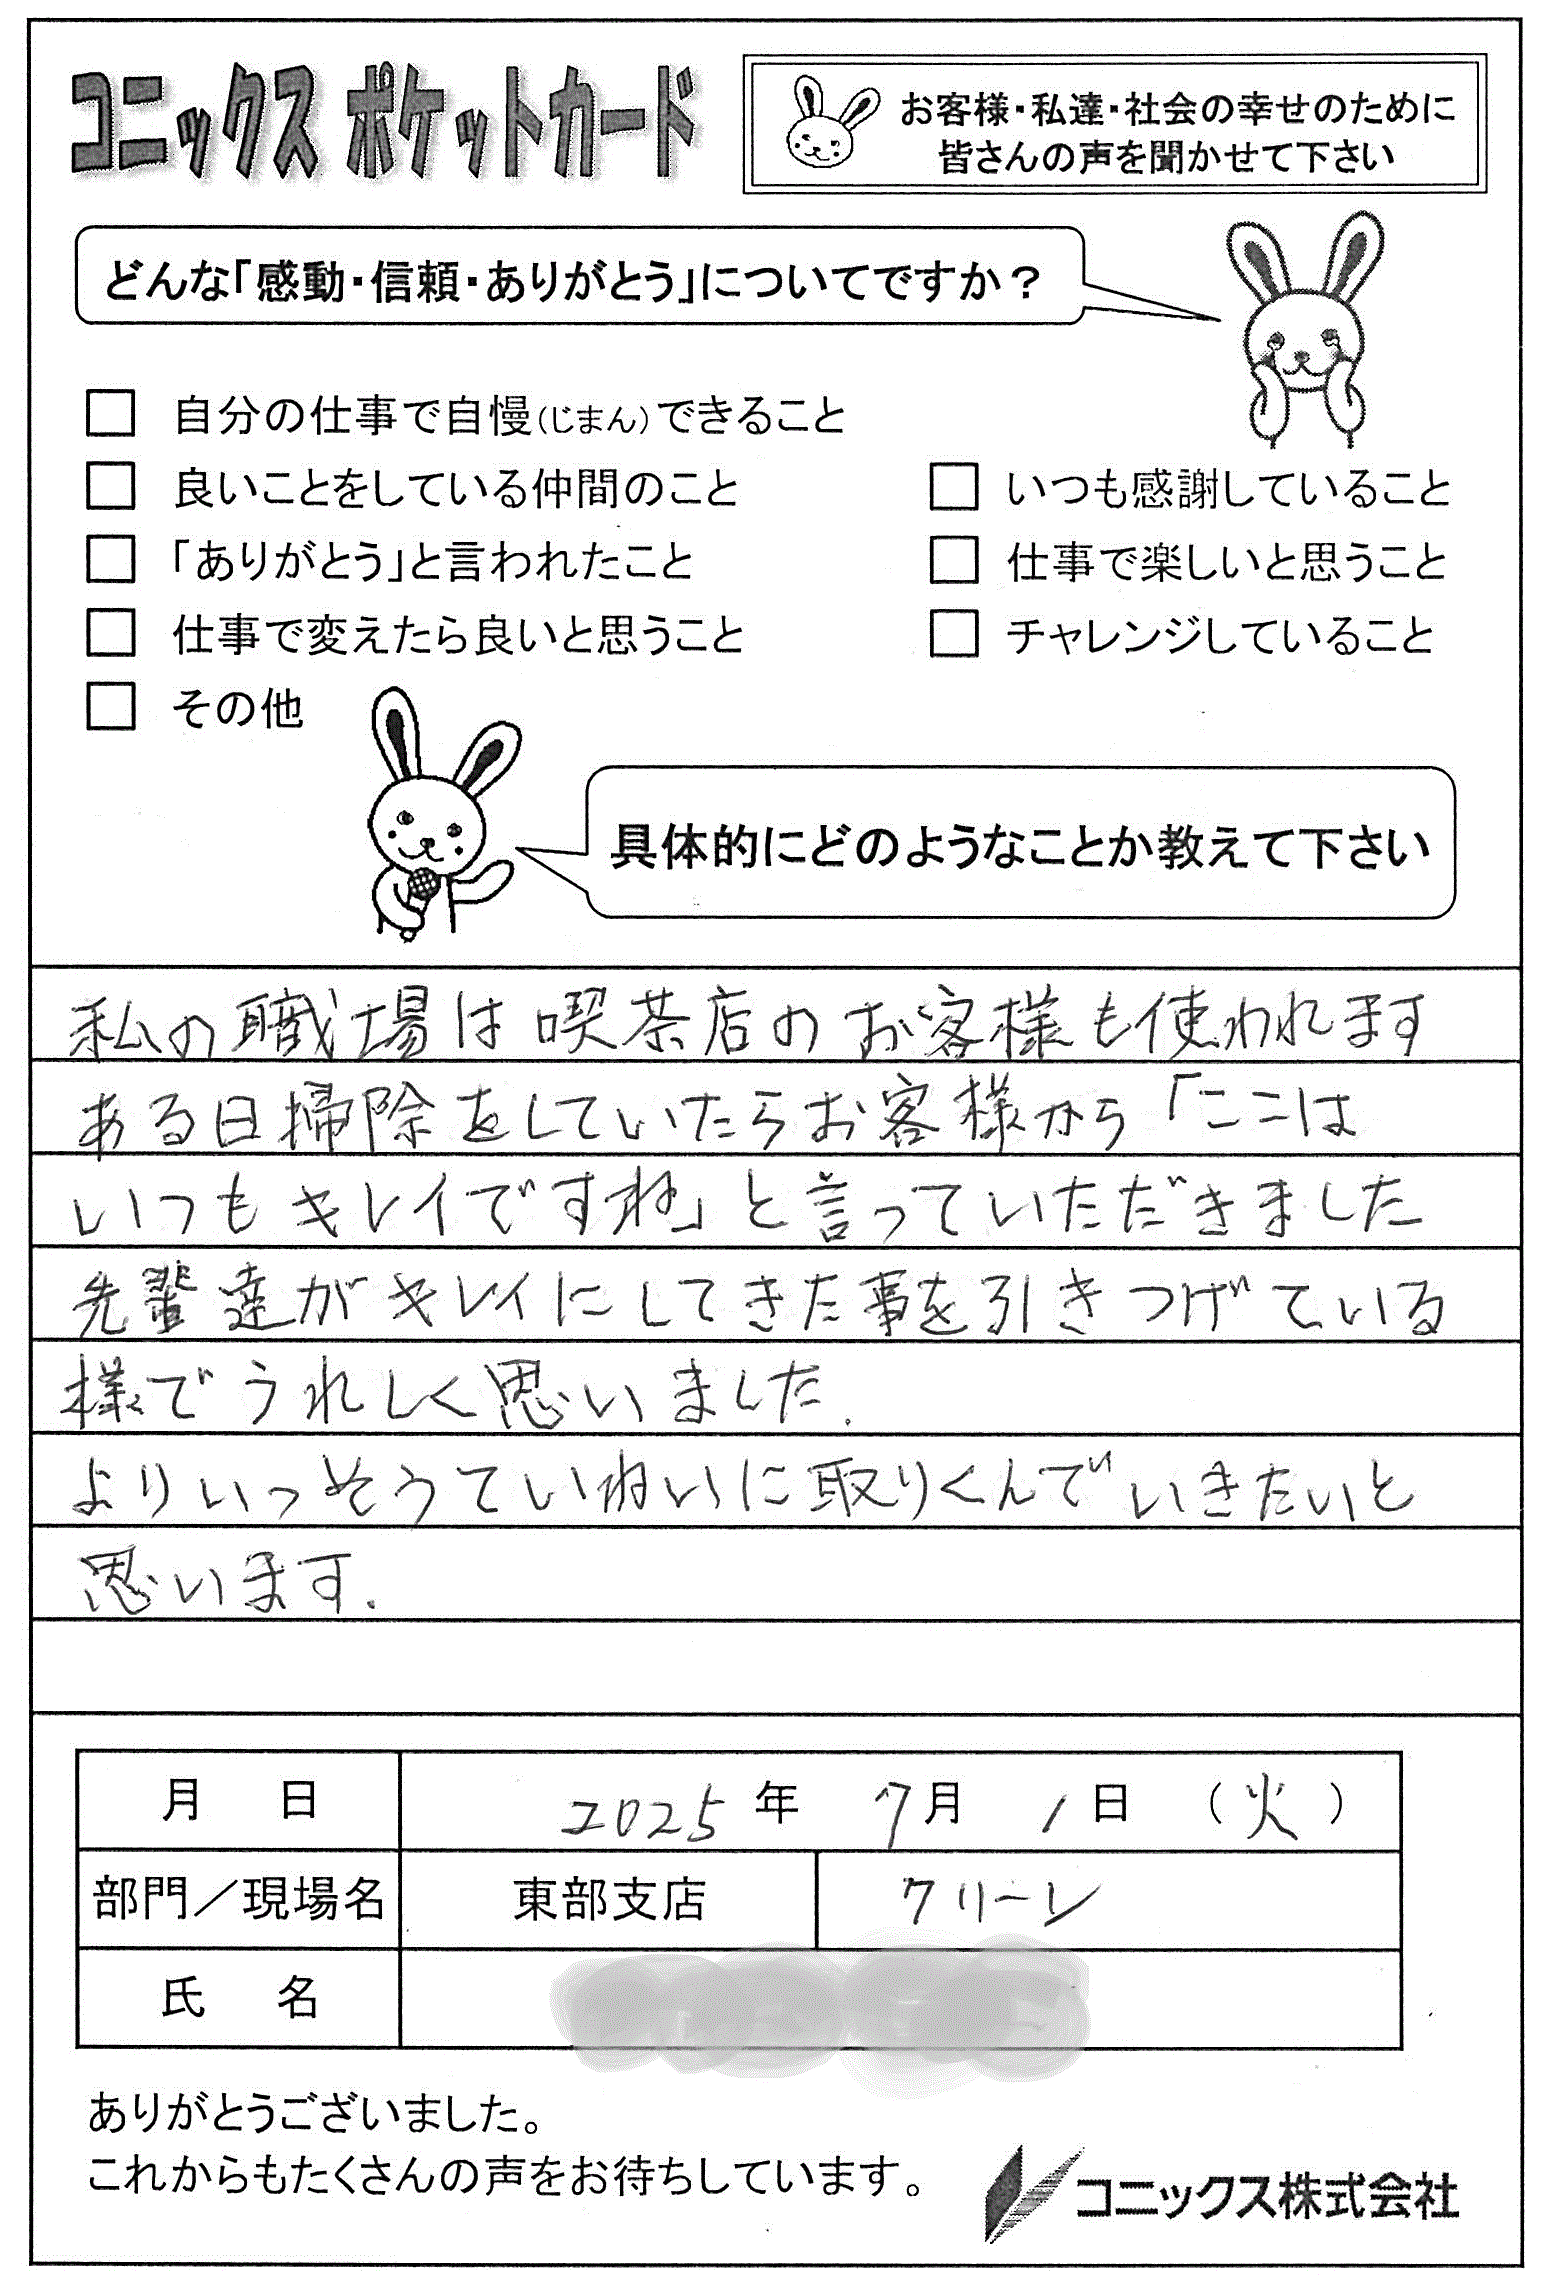 コニックス ポケットカード
お客様・私達・社会の幸せのために
皆さんの声を聞かせて下さい
どんな「感動・信頼・ありがとう」についてですか？
自分の仕事で自慢（じまん）できること
良いことをしている仲間のこと
いつも感謝していること
「ありがとう」と言われたこと
仕事で楽しいと思うこと
仕事で変えたら良いと思うこと
チャレンジしていること
その他
具体的にどのようなことか教えて下さい
私の職場は喫茶店のお客様も使われます
ある日掃除をしていたらお客様から「ここは
いつもキレイですね」と言っていただきました
先輩達がキレイにしてきた事を引きつげている
様でうれしく思いました.
よりいっそうていねいに取りくんでいきたいと
思います.
月 日 2025年 7月 1日 （火）
部門／現場名 東部支店 クリーン
氏 名
ありがとうございました。
これからもたくさんの声をお待ちしています。
コニックス株式会社